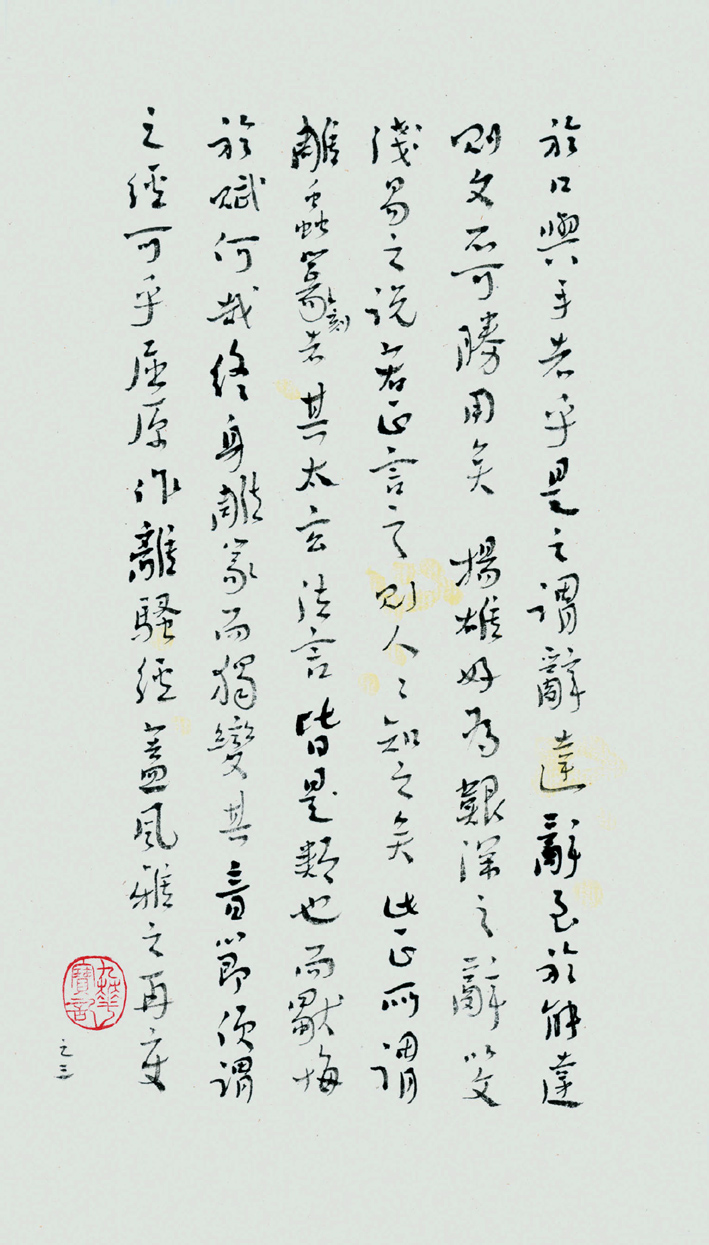 於口與手者乎是之謂辭達辭至於能達
則文不可勝用矣 揚雄好為艱深之辭以文
淺易之說若正言之則人人知之矣此正所謂
雕蟲篆刻者其太玄法言皆是類也而獸悔
於賦何哉終身雕篆而獨變其音節便謂
之經可乎屈原作離騷經蓋風雅之再變
之三